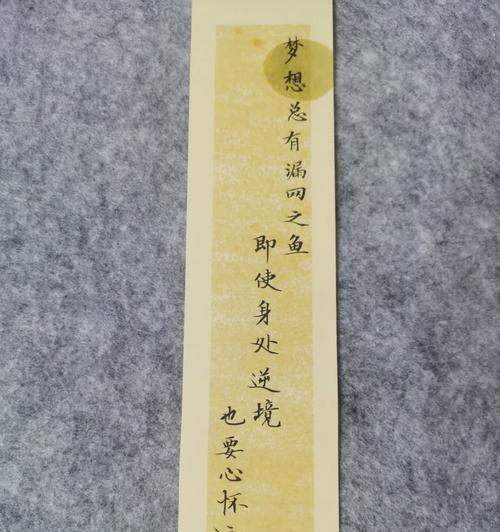 梦想总有漏网之鱼
即使身处逆境
也要心怀